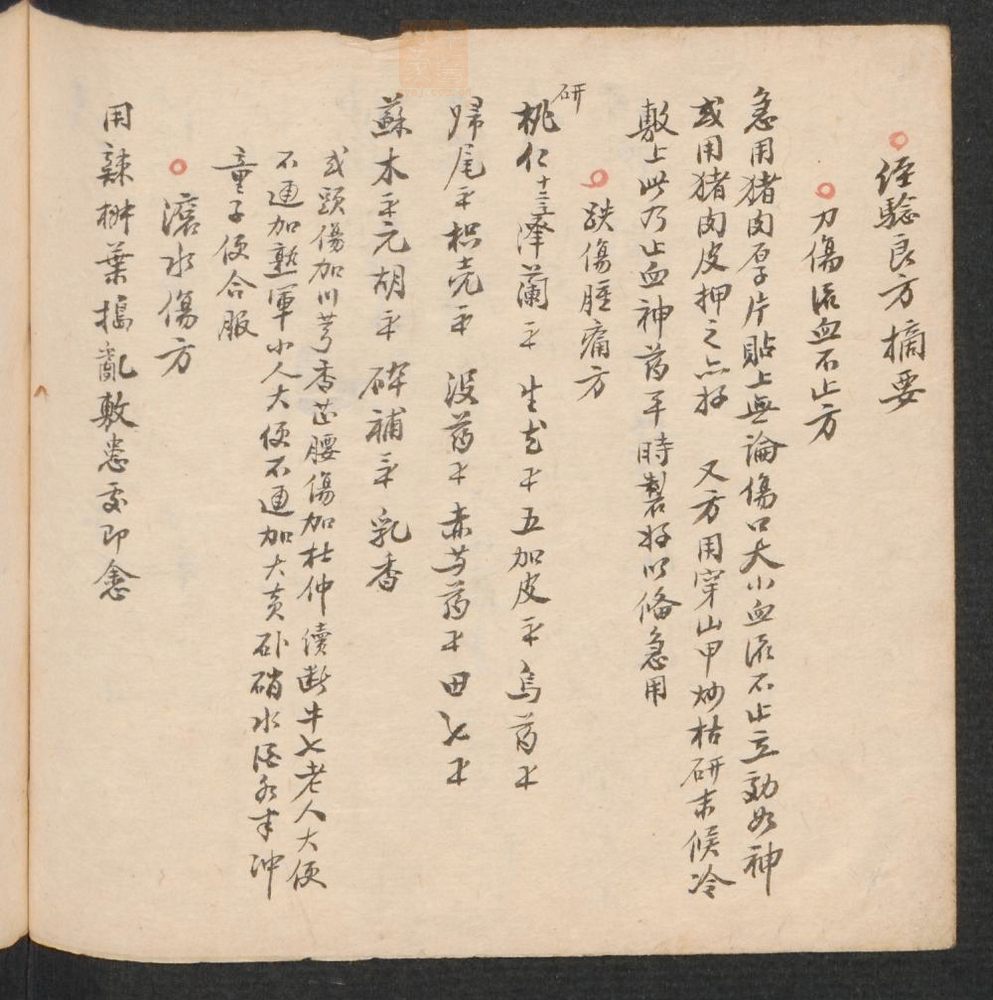 经驗良方摘要
刀傷流血不止方
急用猪肉厚片貼上無論傷口大小血流不止立効如神
或用猪肉皮押之亦好 又方用穿山甲炒枯研末候冷
敷上此乃止血神药平時製好以俻急用
跌傷腫痛方
研
桃仁十二 澤蘭 生 五加皮 烏药
歸尾 枳壳 没药 赤芍药 田七
蘇木 元胡 碎補 乳香
或頭傷加川芎香芷腰傷加杜仲續断牛七老人大便
不通加熟軍小人大便不通加大黄 硝水酒各半冲
童子便合服
滚水傷方
用辣椒葉搗亂敷患處即愈